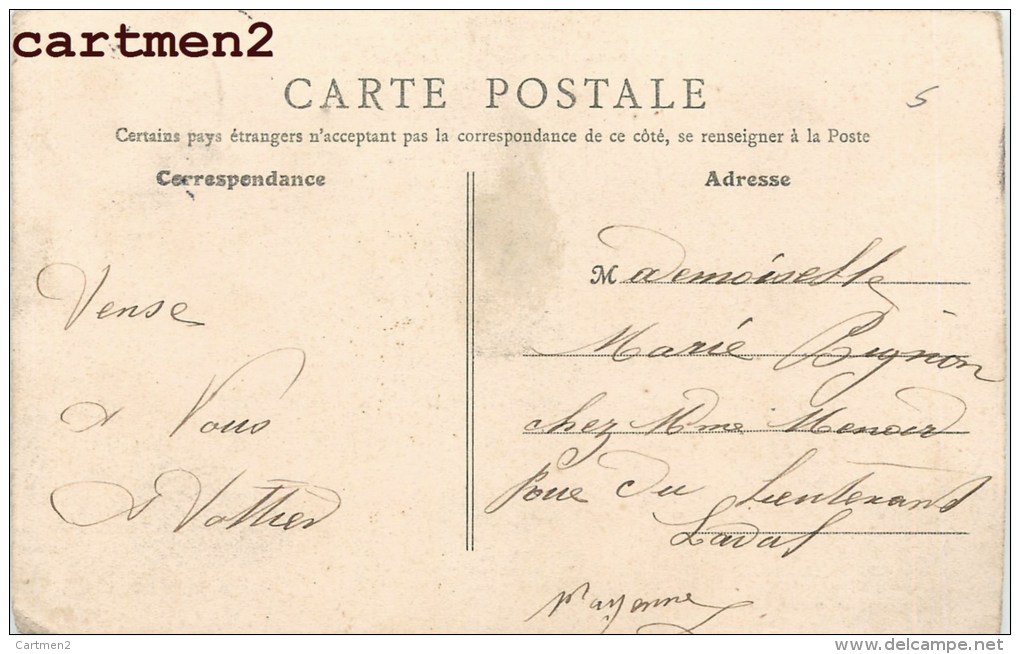 cartmen2
CARTE POSTALE
5
Certains pays étrangers n'acceptant pas la correspondance de ce côté, se renseigner à la Poste
Correspondance
Adresse
Vense
à Vous
Mademoiselle
Marie
chez Mme
Rue du Lieutenant
Laval
Mayenne
Cartmen2
delcampe.net